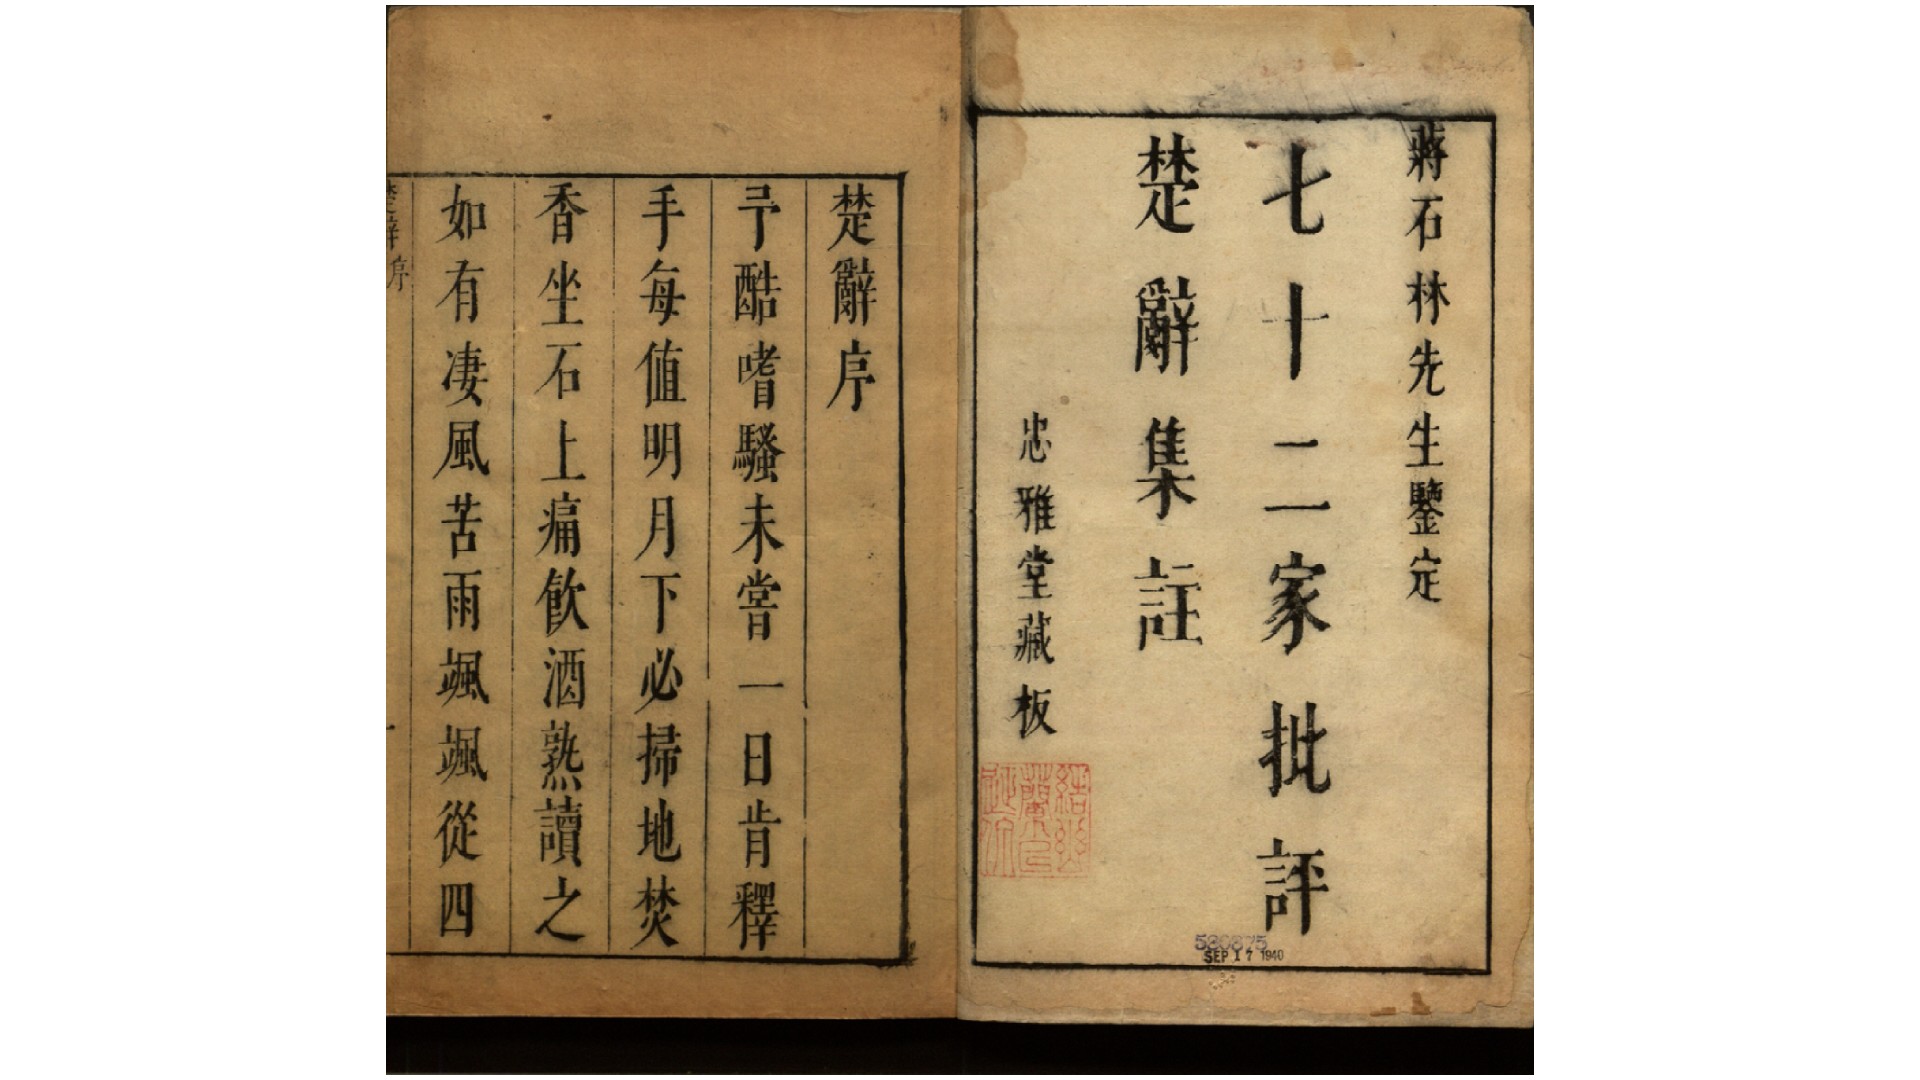 蔣石林先生鑒定
七十二家批評
楚辭集註
忠雅堂藏板
SEP 17 1940
楚辭序
予酷嗜騷未嘗一日肯釋
手每值明月下必掃地焚
香坐石上痛飲酒熟讀之
如有凄風苦雨颯颯從四
楚辭序
一